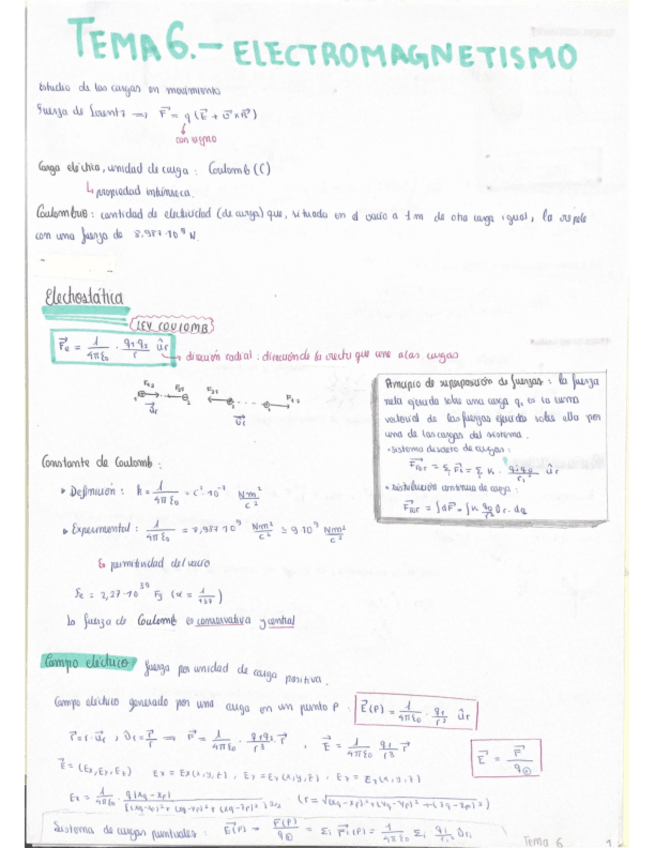 TEMA 6.- ELECTROMAGNETISMO
Estudio de las cargas en movimiento
Fuerza de Lorentz ⇒ F⃗ = q (E⃗ + v⃗ × B⃗)
con signo
Carga eléctrica, unidad de carga: Coulomb (C)
↳ propiedad intrínseca.
Coulombio: cantidad de electricidad (de carga) que, situada en el vacío a 1 m de otra carga igual, la repele
con una fuerza de 8,987·10⁹ N.
Electrostática
LEY COULOMB
F⃗e = 1/4πε₀ · q₁q₂/r ûr
dirección radial: dirección de la recta que une a las cargas
Principio de superposición de fuerzas: la fuerza
neta ejercida sobre una carga q, es la suma
vectorial de las fuerzas ejercidas sobre ella por
una de las cargas del sistema.
• Sistema discreto de cargas:
• Distribución continua de carga:
Constante de Coulomb:
• Definición: k = 1/4πε₀ = c²·10⁻⁷ Nm²/c²
• Experimental: 1/4πε₀ = 8,987·10⁹ Nm²/c² ≅ 9·10⁹ Nm²/c²
↳ permitividad del vacío
Fe = 2,27·10³⁹ Fg (α = 1/137)
La fuerza de Coulomb es conservativa y central
Campo eléctrico fuerza por unidad de carga positiva.
Campo eléctrico generado por una carga en un punto P:
E⃗(P) = 1/4πε₀ · q₁/r² ûr
E⃗ = (Ex, Ey, Ez) Ex = Ex(x,y,z), Ey = Ey(x,y,z), Ez = Ez(x,y,z)
Sistema de cargas puntuales:
Tema 6 1